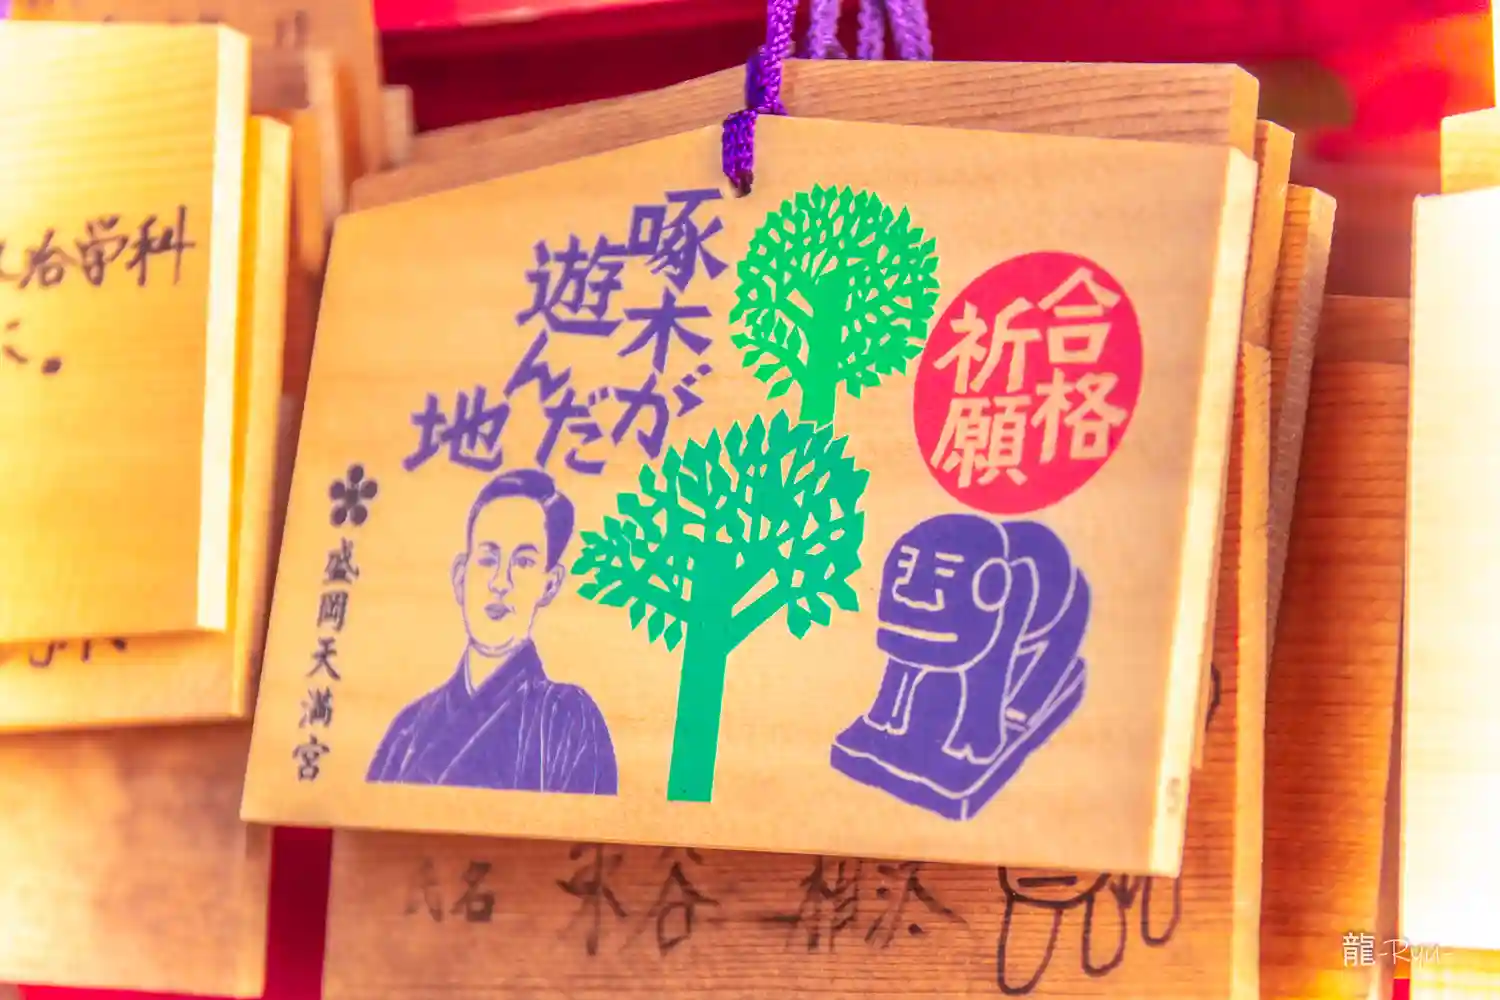 合格
祈願
啄木が
遊んだ
地
盛岡天満宮
治学科
氏名
谷
龍-Ryu-